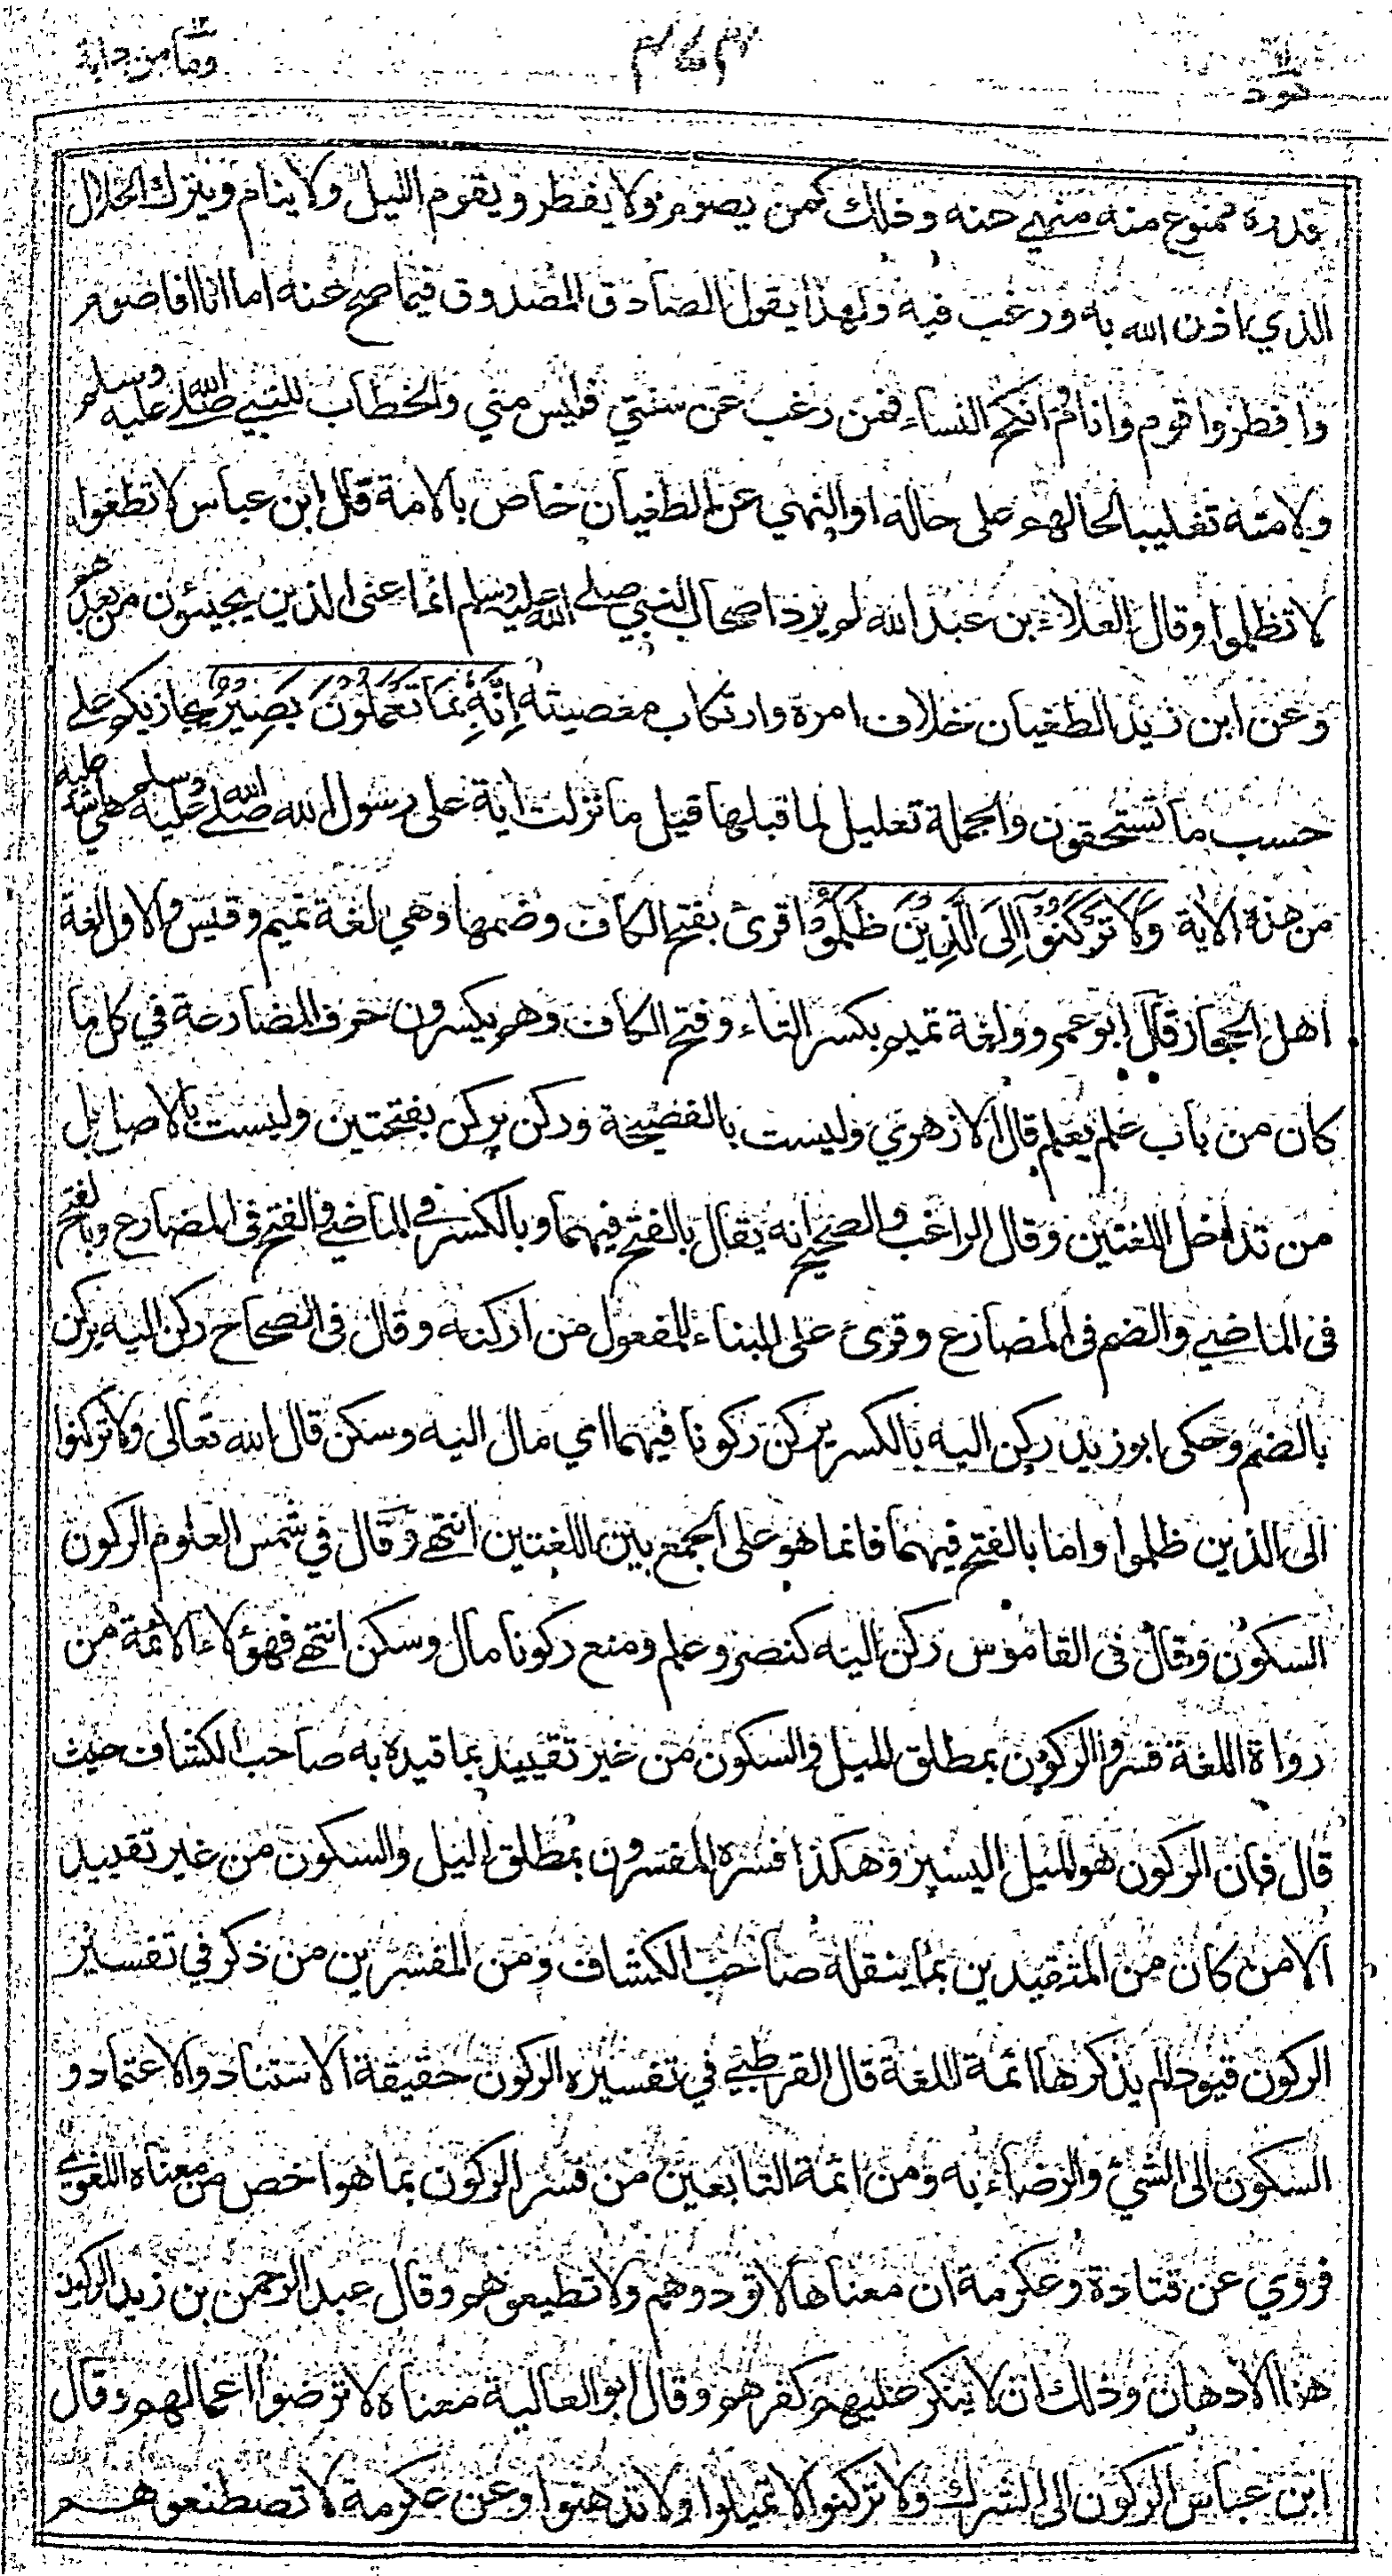 هود ١١ ٣٧٣ وما من دابة ١٢
قدره ممنوع منه منهي عنه وذلك كمن يصوم ولا يفطر ويقوم الليل ولا ينام ويترك الحلال
الذي اذن الله به ورغب فيه ولهذا يقول الصادق المصدوق فيما صح عنه اما انا فاصوم
وافطر واقوم وانام وانكح النساء فمن رغب عن سنتي فليس مني والخطاب للنبي صلى الله عليه وسلم
ولامته تغليبا لحالهم على حاله او النهي عن الطغيان خاص بالامة قال ابن عباس لا تطغوا
لا تظلموا وقال العلاء بن عبد الله لم يرد اصحاب النبي صلى الله عليه وسلم انما عنى الذين يجيئون من بعدهم
وعن ابن زيد الطغيان خلاف امره وارتكاب معصيته إِنَّهُ بِمَا تَعْمَلُونَ بَصِيرٌ يجازيكم على
حسب ما تستحقون والجملة تعليل لما قبلها قيل ما نزلت اية على رسول الله صلى الله عليه وسلم هي اشد عليه
من هذه الاية وَلَا تَرْكَنُوْا إِلَى الَّذِيْنَ ظَلَمُوْا قرئ بفتح الكاف وضمها وهي لغة تميم وقيس والاولى لغة
اهل الحجاز قال ابو عمرو ولغة تميم بكسر التاء وفتح الكاف وهم يكسرون حرف المضارعة في كل ما
كان من باب علم يعلم قال الازهري وليست بالفصيحة وركن يركن بفتحتين وليست بالاصل بل
من تداخل اللغتين وقال الراغب والصحيح انه يقال بالفتح فيهما وبالكسر في الماضي والفتح فى المضارع وبالفتح
فى الماضي والضم فى المضارع وقرئ على البناء للمفعول من اركنه وقال فى الصحاح ركن اليه يركن
بالضم وحكى ابو زيد ركن اليه بالكسر يركن ركونا فيهما اي مال اليه وسكن قال الله تعالى ولا تركنوا
الى الذين ظلموا واما بالفتح فيهما فانما هو على الجمع بين اللغتين انتهى وقال في شمس العلوم الركون
السكون وقال فى القاموس ركن اليه كنصر وعلم ومنع ركونا مال وسكن انتهى فهؤلاء الائمة من
رواة اللغة فسروا الركون بمطلق الميل والسكون من غير تقييد بما قيده به صاحب الكشاف حيث
قال فان الركون هو الميل اليسير وهكذا فسره المفسرون بمطلق الميل والسكون من غير تقييد
الا من كان من المتقيدين بما ينقله صاحب الكشاف ومن المفسرين من ذكر في تفسير
الركون قيودا لم يذكرها ائمة اللغة قال القرطبي في تفسيره الركون حقيقة الاستناد والاعتماد و
السكون الى الشيء والرضاء به ومن ائمة التابعين من فسر الركون بما هو اخص من معناه اللغوي
فروي عن قتادة وعكرمة ان معناها لا تودوهم ولا تطيعوهم وقال عبد الرحمن بن زيد الركون
هذا الادهان وذلك ان لا ينكر عليهم كفرهم وقال ابو العالية معناه لا ترضوا اعمالهم وقال
ابن عباس الركون الى الشرك ولا تركنوا لا تميلوا ولا تدهنوا وعن عكرمة لا تصطنعوهم